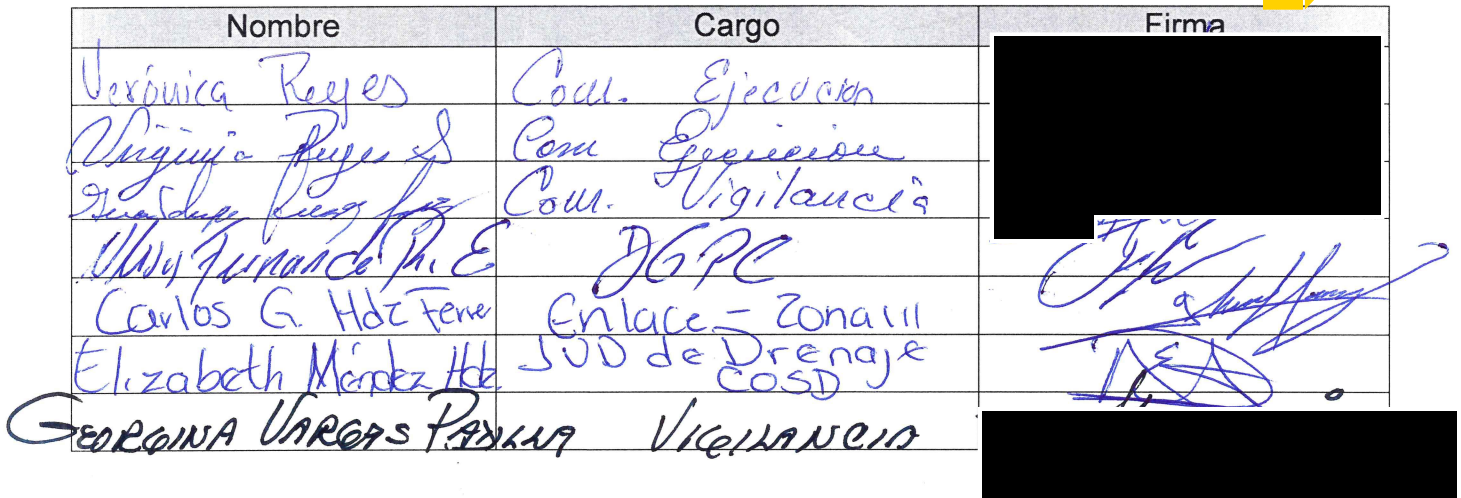 Nombre Cargo Firma
Verónica Reyes Com. Ejecución
Virginia Reyes S Com Ejecucion
Guadalupe Com. Vigilancia
Fernando M. E DGPC
Carlos G. Hdz Ferrer Enlace - Zona III
Elizabeth Méndez Hdz JUD de Drenaje
COSD
GEORGINA VARGAS PADILLA VIGILANCIA